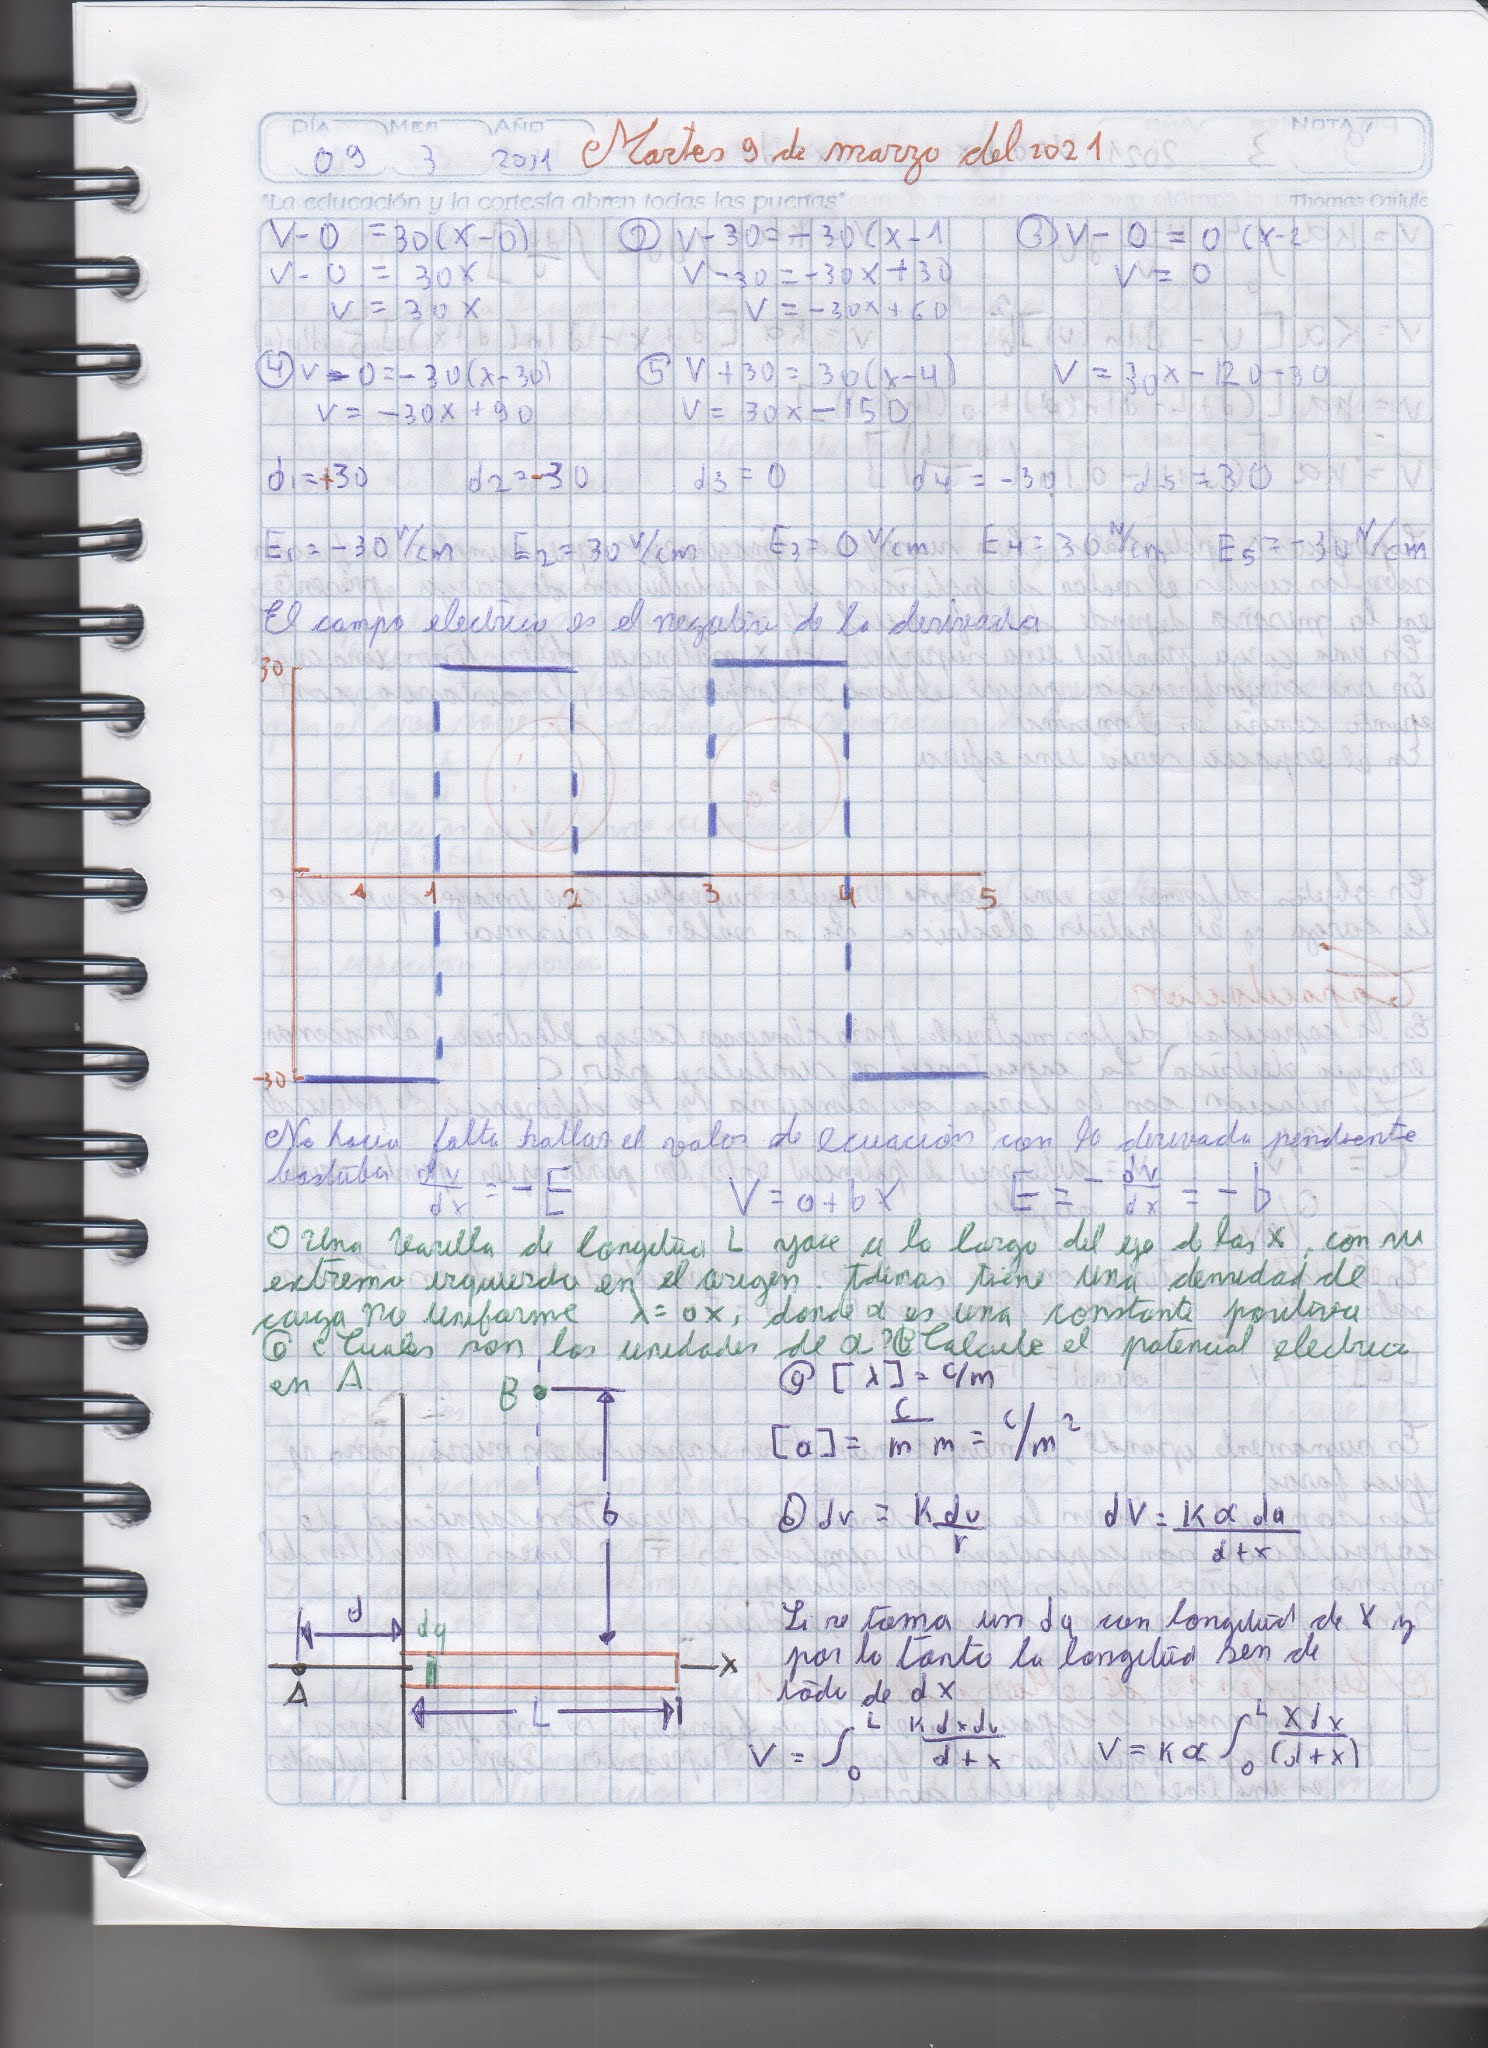 DÍA MES AÑO NOTA
09 3 2011 Martes 9 de marzo del 2021
"La educación y la cortesía abren todas las puertas" Thomas Carlyle
V-0 = 30(x-0) ② V-30 = -30(x-1 ③ V-0 = 0 (x-2
V-0 = 30x V-30 = -30x+30 V = 0
V = 30x V = -30x+60
④ V-0 = -30(x-30) ⑤ V+30 = 30(x-4) V = 30x-120-30
V = -30x+90 V = 30x-150
d1=+30 d2=-30 d3=0 d4=-30 d5=30
E1=-30 V/cm E2=30 V/cm E3=0 V/cm E4=30 N/cm E5=-30 N/cm
El campo electrico es el negativo de la derivada
30
1 2 3 4 5
-30
No hacia falta hallar el valor de ecuación con la derivada pendiente
bastaba dv/dx = -E V = a+bx E = -dv/dx = -b
O una varilla de longitud L yace a lo largo del eje de las X, con su
extremo izquierdo en el origen. Ademas tiene una densidad de
carga no uniforme λ=αx, donde α es una constante positiva
ⓐ ¿Cuales son las unidades de α? ⓑ Calcule el potencial electrico
en A
B
ⓐ [λ] = C/m
[α] = C/m m = C/m²
b
ⓑ dv = K dv/r dV = K α da/d+x
d dq
Si se toma un dq con longitud de X y
por lo tanto la longitud sera de
A L X
lado de dx
V = ∫₀ᴸ K dx dv/d+x V = Kα ∫₀ᴸ X dx/(d+x)